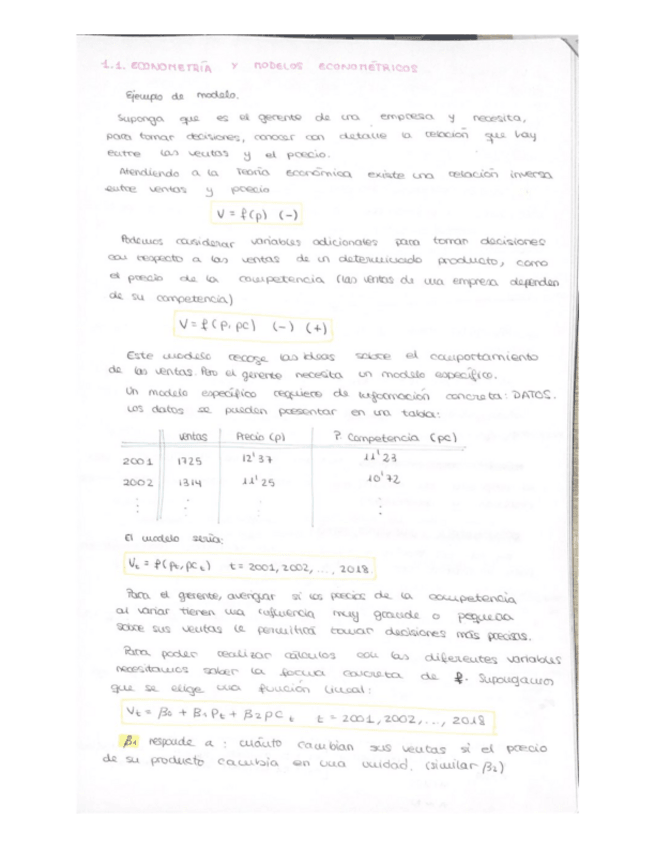 1.1. ECONOMETRÍA Y MODELOS ECONOMÉTRICOS
Ejemplo de modelo.
Suponga que es el gerente de una empresa y necesita,
para tomar decisiones, conocer con detalle la relación que hay
entre las ventas y el precio.
Atendiendo a la Teoría económica existe una relación inversa
entre ventas y precio
V = f(p) (-)
Podemos considerar variables adicionales para tomar decisiones
con respecto a las ventas de un determinado producto, como
el precio de la competencia (las ventas de una empresa dependen
de su competencia)
V = f(p, pc) (-) (+)
Este modelo recoge las ideas sobre el comportamiento
de las ventas. Pero el gerente necesita un modelo específico.
Un modelo específico requiere de información concreta: DATOS.
Los datos se pueden presentar en una tabla:
ventas Precio (p) P. Competencia (pc)
2001 1725 12'37 11'23
2002 1314 11'25 10'72
⋮ ⋮ ⋮ ⋮
El modelo sería:
Vt = f(pt, pct) t = 2001, 2002, ..., 2018.
Para el gerente, averiguar si los precios de la competencia
al variar tienen una influencia muy grande o pequeña
sobre sus ventas le permitirá tomar decisiones más precisas.
Para poder realizar cálculos con las diferentes variables
necesitamos saber la forma concreta de f. Supongamos
que se elige una función lineal:
Vt = β0 + β1 Pt + β2 PC t t = 2001, 2002, ..., 2018
β1 responde a: cuánto cambian sus ventas si el precio
de su producto cambia en una unidad. (similar β2)